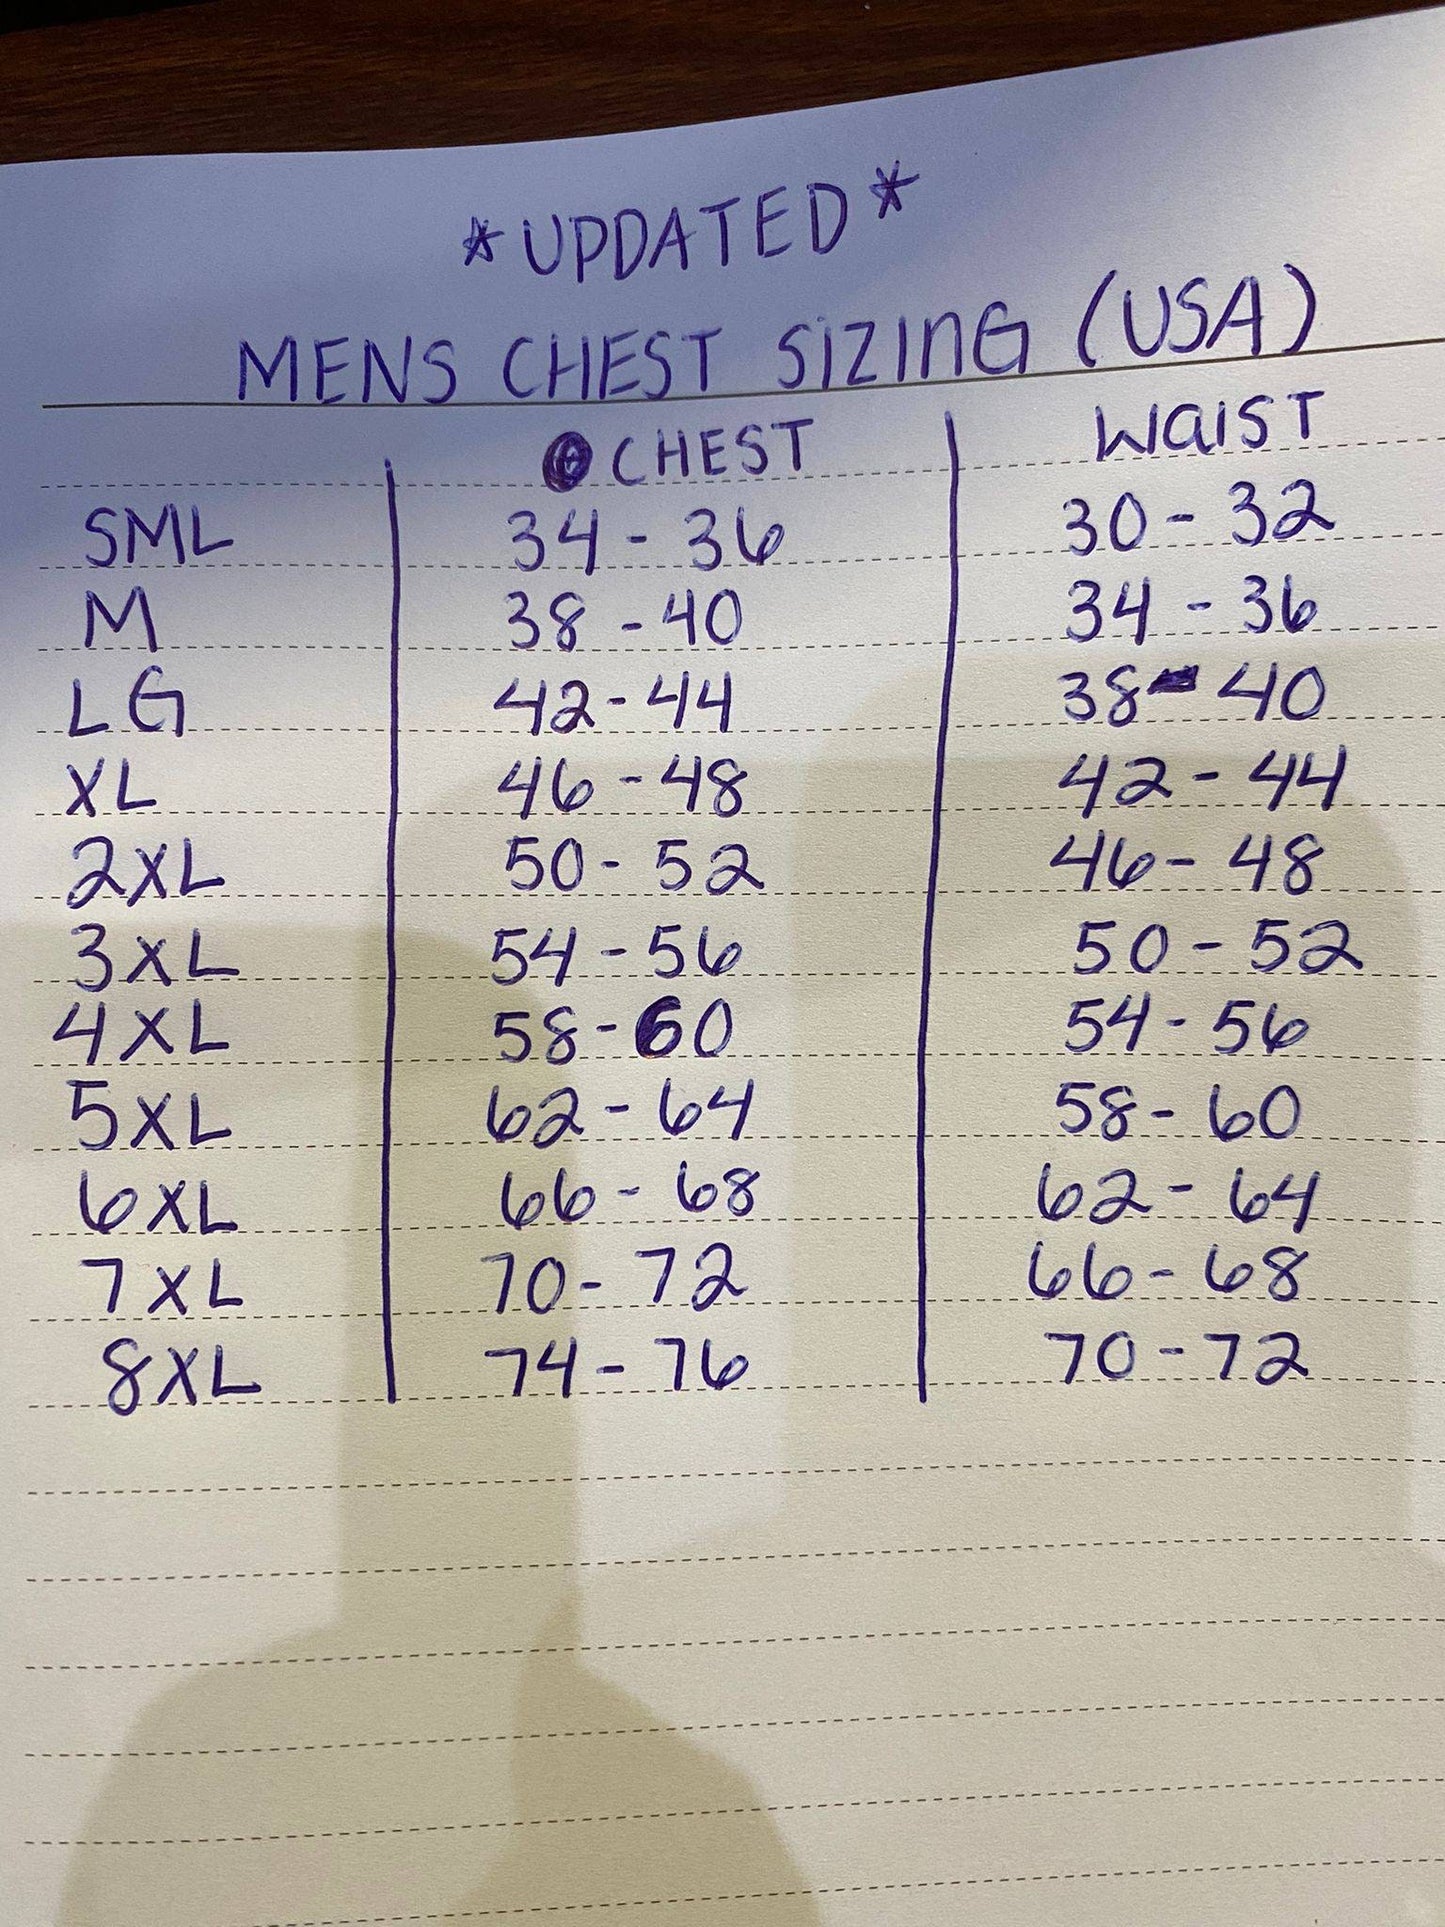 *UPDATED*
MENS CHEST SIZING (USA)
CHEST WAIST
SML 34 - 36 30 - 32
M 38 - 40 34 - 36
LG 42 - 44 38 - 40
XL 46 - 48 42 - 44
2XL 50 - 52 46 - 48
3XL 54 - 56 50 - 52
4XL 58 - 60 54 - 56
5XL 62 - 64 58 - 60
6XL 66 - 68 62 - 64
7XL 70 - 72 66 - 68
8XL 74 - 76 70 - 72